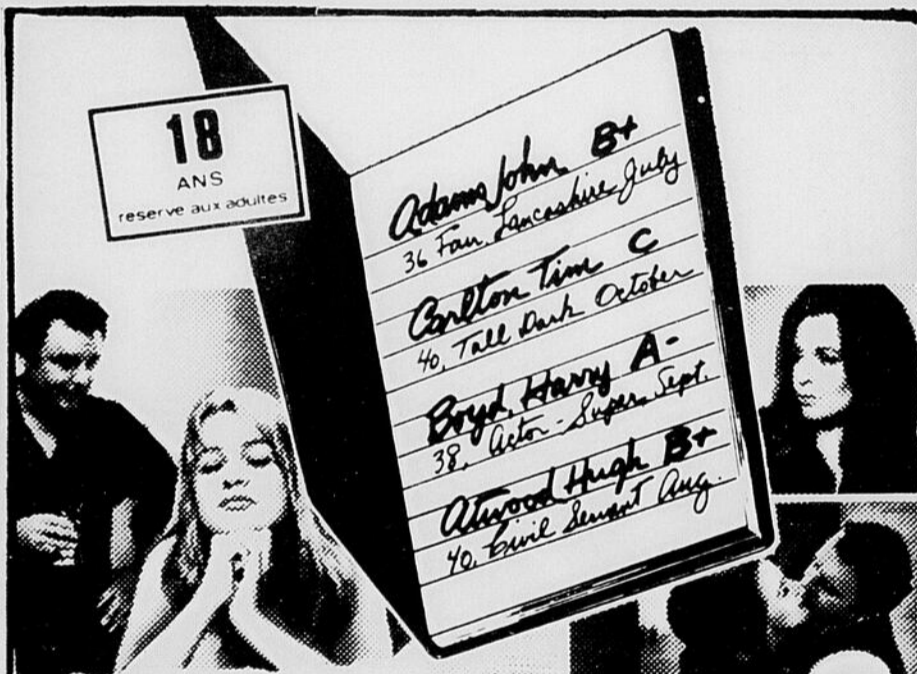 18
ANS
reserve aux adultes
Adams John B+
36 Fair, Lancashire, July
Carlton Tim C
40, Tall Dark October
Boyd, Harry A-
38, Actor - Super, Sept.
Atwood Hugh B+
40, Civil Servant Aug.